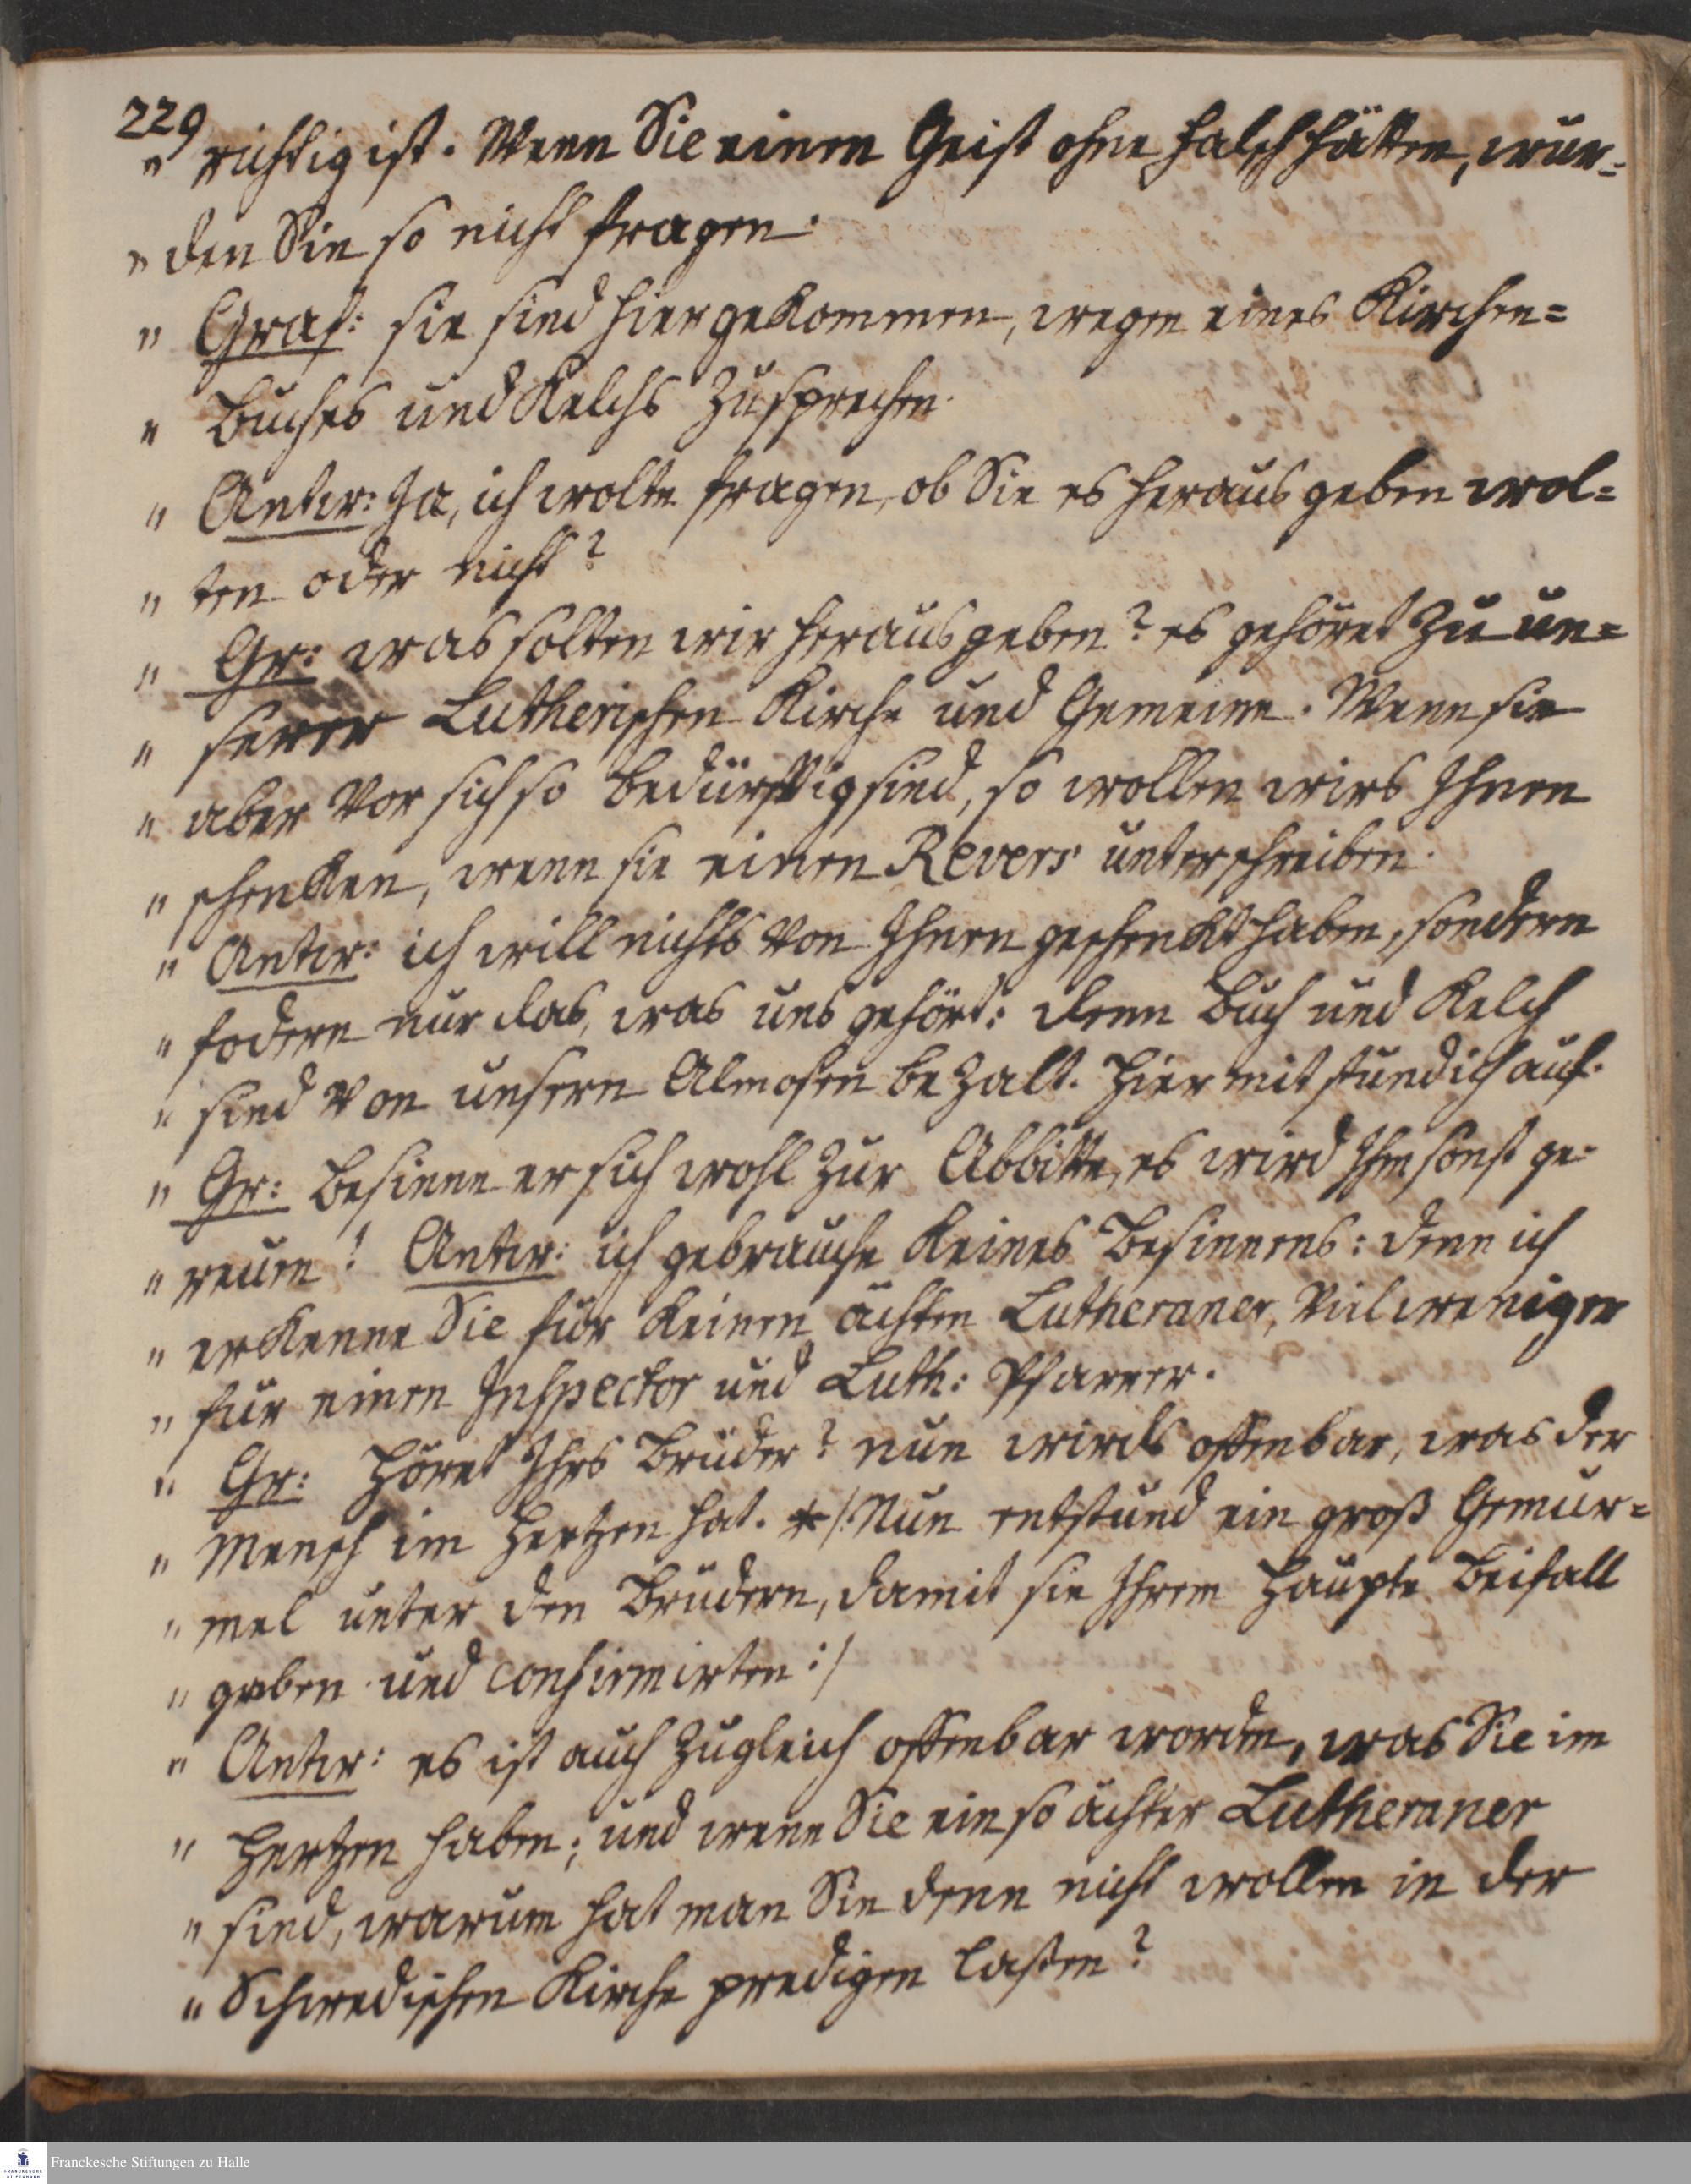 229
„ richtig ist. Wenn Sie einen Geist ohne falsch hätten, wür=
„ den Sie so nicht fragen.
„ Graf: sie sind hier gekommen, wegen eines Kirchen=
„ Buches und Kelchs zu sprechen.
„ Antw: Ja, ich wolte fragen, ob Sie es heraus geben wol=
„ ten oder nicht?
„ Gr: was solten wir heraus geben? es gehöret zu un=
„ serer Lutherischen Kirche und Gemeine. Wenn sie
„ aber vor sich so bedürfftig sind, so wollen wirs Ihnen
„ schenken, wenn sie einen Revers unterschreiben.
„ Antw: ich will nichts von Ihnen geschenkt haben, sondern
„ fodern nur das, was uns gehört: denn Buch und Kelch
„ sind von unsern Almosen bezalt. Hiermit stund ich auf.
„ Gr: besinne er sich wohl zur Abbitte, es wird Ihm sonst ge=
„ reuen! Antw: ich gebrauche keines Besinnens: denn ich
„ erkenne Sie für keinen ächten Lutheraner, vielweniger
„ für einen Inspector und Luth: Pfarrer.
„ Gr: Höret Ihrs Brüder? nun wirds offenbar, was der
„ Mensch im Hertzen hat. */: Nun entstund ein groß Gemur=
„ mel unter den Brüdern, damit sie Ihrem Haupte Beifall
„ gaben und confirmirten :/
„ Antw: es ist auch zugleich offenbar worden, was Sie im
„ Hertzen haben; und wenn Sie ein so ächter Lutheraner
„ sind, warum hat man Sie denn nicht wollen in der
„ Schwedischen Kirche predigen laßen?
FRANCKESCHE STIFTUNGEN
Franckesche Stiftungen zu Halle